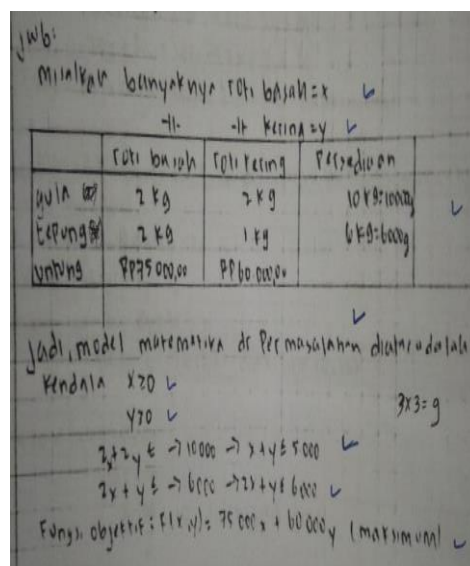 jwb:
misalkan banyaknya roti basah = x
-11- -11- kering = y
roti basah roti kering Persediaan
gula 2 kg 2 kg 10 kg = 10000g
tepung 2 kg 1 kg 6 kg = 6000g
untung RP75 000,00 RP60 000,00
Jadi, model matematika dr Permasalahan diatas adalah
Kendala x ≥ 0
y ≥ 0
3x3 = 9
2x + 2y ≤ → 10000 → x + y ≤ 5000
2x + y ≤ → 6000 → 2x + y ≤ 6000
Fungsi objektif : F(x,y) = 75 000x + 60 000y (maksimum)